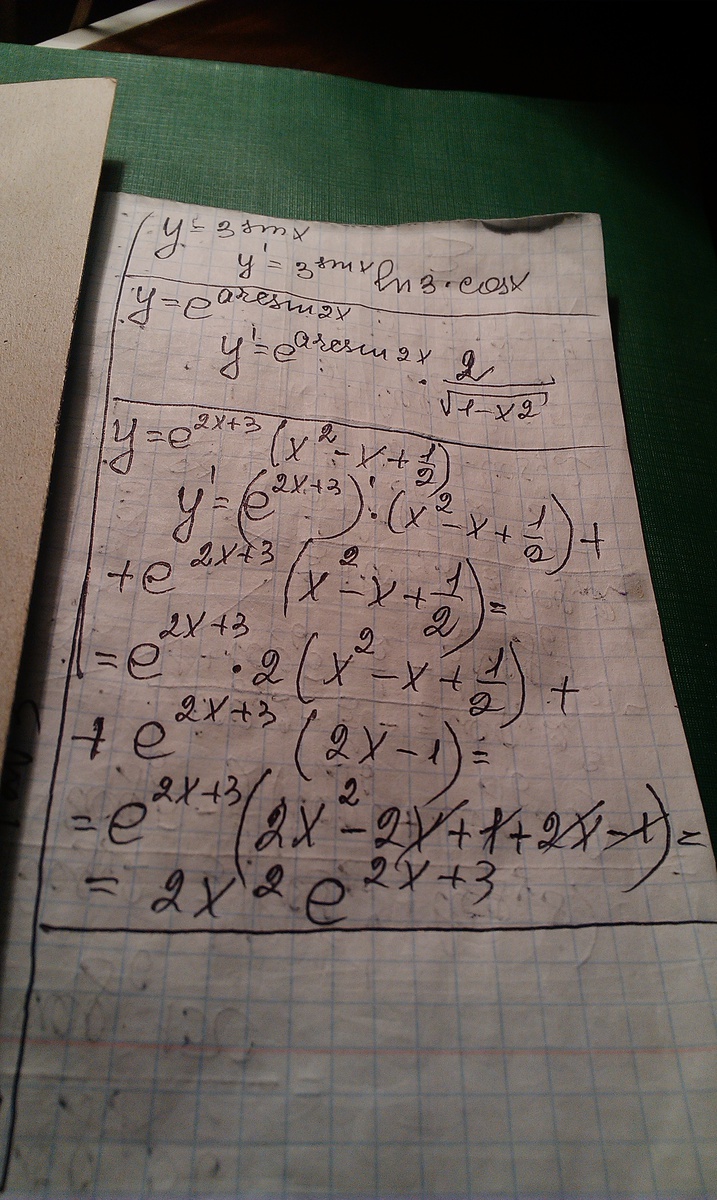 y = 3^sinx
y' = 3^sinx ln 3 · cosx
y = e^arcsin2x
y' = e^arcsin2x · 2/√(1-x2)
y = e^(2x+3) (x² - x + 1/2)
y' = (e^(2x+3))' · (x² - x + 1/2) +
+ e^(2x+3) (x² - x + 1/2) =
= e^(2x+3) · 2 (x² - x + 1/2) +
+ e^(2x+3) (2x - 1) =
= e^(2x+3) (2x² - 2x + 1 + 2x - 1) =
= 2x² e^(2x+3)